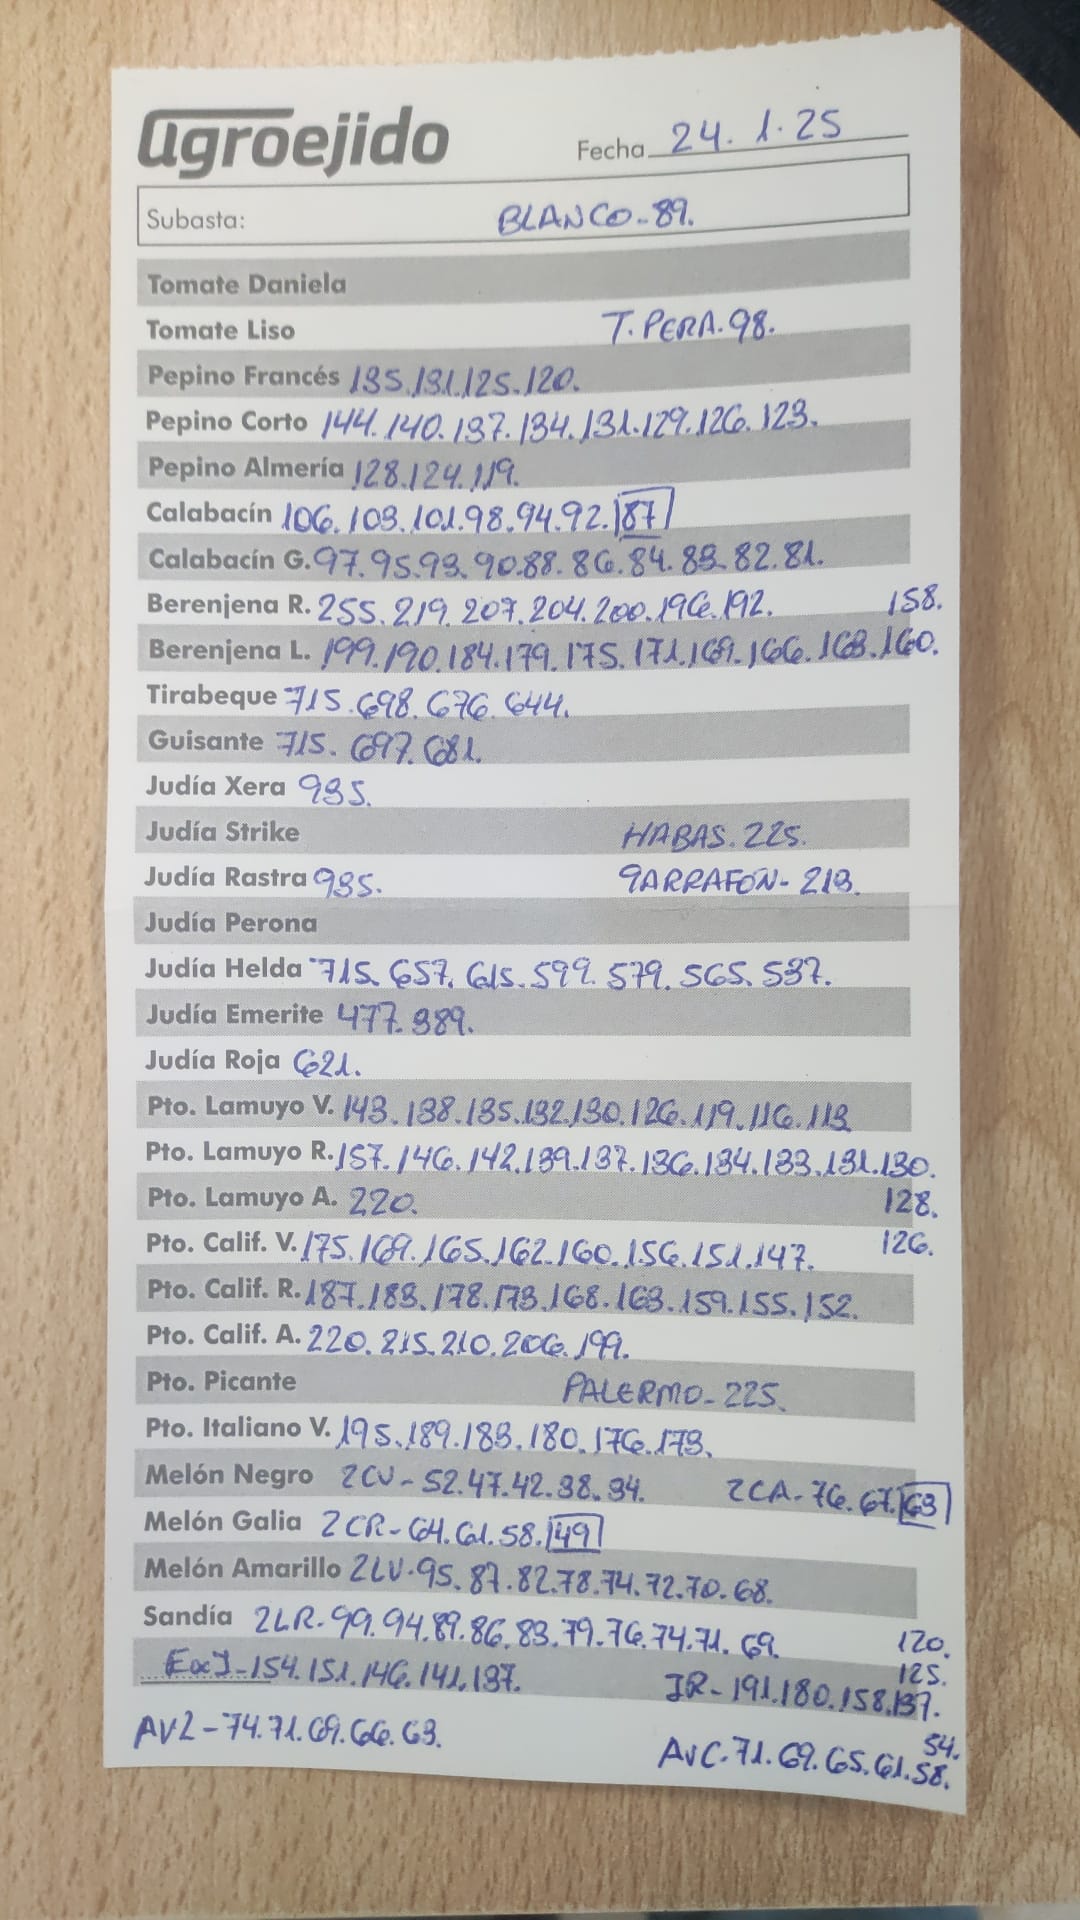 agroejido
Fecha 24.1.25
Subasta: BLANCO-89.
Tomate Daniela
Tomate Liso T.PERA.98.
Pepino Francés 135.131.125.120.
Pepino Corto 144.140.137.134.131.129.126.123.
Pepino Almería 128.124.119.
Calabacín 106.103.101.98.94.92.87
Calabacín G. 97.95.93.90.88.86.84.83.82.81.
Berenjena R. 255.219.207.204.200.196.192. 158.
Berenjena L. 199.190.184.179.175.171.169.166.163.160.
Tirabeque 715.698.676.644.
Guisante 715.697.681.
Judía Xera 935.
Judía Strike HABAS.225.
Judía Rastra 935. GARRAFON-213.
Judía Perona
Judía Helda 715.657.615.599.579.565.537.
Judía Emerite 477.389.
Judía Roja 621.
Pto. Lamuyo V. 143.138.135.132.130.126.119.116.113
Pto. Lamuyo R. 157.146.142.139.137.136.134.133.131.130.
Pto. Lamuyo A. 220. 128.
Pto. Calif. V. 175.169.165.162.160.156.151.147. 126.
Pto. Calif. R. 187.183.178.173.168.163.159.155.152.
Pto. Calif. A. 220.215.210.206.199.
Pto. Picante PALERMO-225.
Pto. Italiano V. 195.189.183.180.176.173.
Melón Negro 2CV-52.47.42.38.34. 2CA-76.67.63
Melón Galia 2CR-64.61.58.49
Melón Amarillo 2LV-95.87.82.78.74.72.70.68.
Sandía 2LR-99.94.89.86.83.79.76.74.71.69. 120.
-154.151.146.141.137. 125.
IR-191.180.158.137.
AV2-74.71.69.66.63. 54.
AVC.71.69.65.61.58.